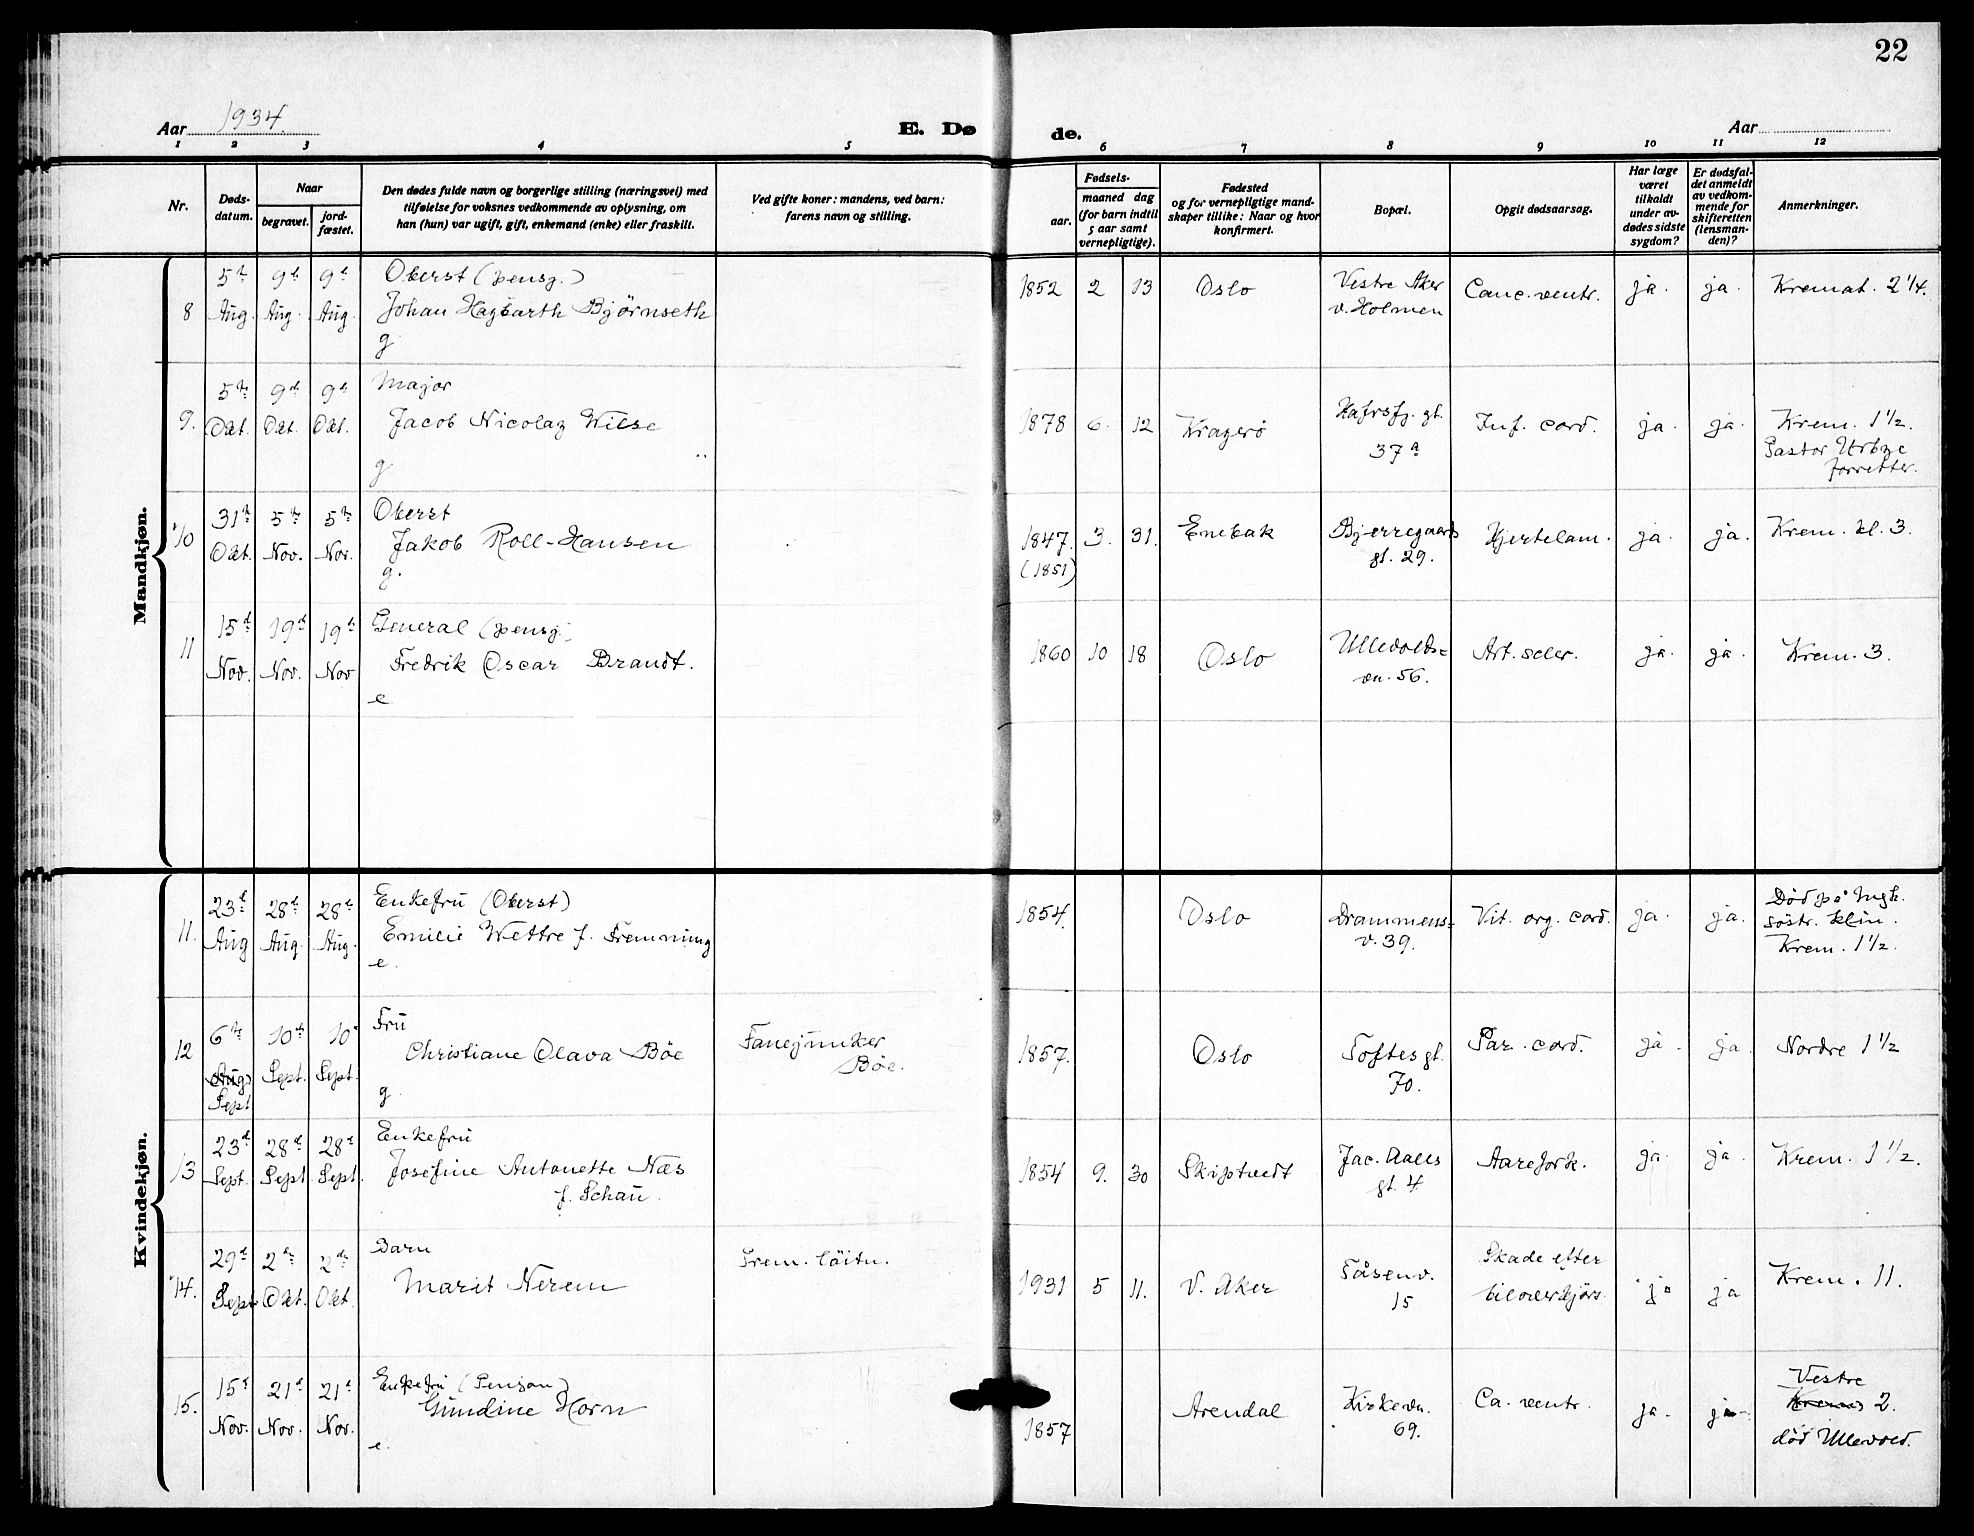 22
Aar 1934.
E. Dø de.
Aar
1 2 3 4 5 6 7 8 9 10 11 12
Nr.
Døds-
datum.
Naar
begravet.
jord-
fæstet.
Den dødes fulde navn og borgerlige stilling (næringsvei) med
tilføielse for voksnes vedkommende av oplysning, om
han (hun) var ugift, gift, enkemand (enke) eller fraskilt.
Ved gifte koner: mandens, ved barn:
farens navn og stilling.
Fødsels-
aar.
maaned dag
(for barn indtil
5 aar samt
vernepligtige).
Fødested
og for vernepligtige mand-
skaper tillike: Naar og hvor
konfirmert.
Bopæl.
Opgit dødsaarsag.
Har læge
været
tilkaldt
under av-
dødes sidste
sygdom?
Er dødsfal-
det anmeldt
av vedkom-
mende for
skifteretten
(lensman-
den)?
Anmerkninger.
Mandkjøn.
8
5te Aug.
9de Aug.
9de Aug.
Oberst (pensj.)
Johan Hagbarth Bjørnseth
g
1852 2 13
Oslo
Vestre Aker
v. Holmen
Canc. ventr.
ja.
ja.
Kremat. 2 1/4.
9.
5te Okt.
9de Okt.
9de Okt.
Major
Jacob Nicolay Wilse
g
1878 6. 12
Kragerö
Hafrsfj. gt.
37 a
Inf. cord.
ja.
ja.
Krem. 1 1/2.
Pastor Urbye
forretter.
10
31te Okt.
5te Nov.
5te Nov.
Oberst
Jakob Roll-Hansen
g.
1847. 3. 31.
(1851)
Enebak
Bjerregaards
gt. 29.
Hjertelam.
ja.
ja.
Krem. kl. 3.
11
15de Nov.
19de Nov.
19de Nov
General (pensj.)
Fredrik Oscar Brandt.
e
1860 10 18
Oslo
Ullevolds=
vn. 56.
Art. scler.
ja.
ja.
Krem. 3.
Kvindekjøn.
11.
23de Aug
28de Aug.
28de Aug.
Enkefru (Oberst)
Emilie Wettre f. Fremming
e.
1854.
Oslo
Drammens=
v. 39.
Vit. org. cord.
ja.
ja.
Död på
söstr. klin.
Krem. 1 1/2.
12
6te Aug. Sept
10de Sept.
10 Sept.
Fru
Christiane Olava Böe
g.
Fanejunker
Böe.
1857.
Oslo
Toftesgt.
70.
Par. cord.
ja.
ja.
Nordre 1 1/2
13
23de Sept.
28de Sept.
28de Sept.
Enkefru
Josefine Antonette Næs
f. Schau.
1854 9. 30
Skiptvedt
Jac. Aalls
gt. 4
Aarefork.
ja.
ja.
Krem. 1 1/2.
14.
29de Sept
2de Okt.
2de Okt.
Barn
Marit Nerem
Prem. löitn.
1931 5 11.
V. Aker
Tåsenv.
15
Skade efter
biloverkjörs.
ja
ja
Krem. 11.
15.
15de Nov.
21de Nov.
21de Nov.
Enkefru (Pensjon)
Gundine Horn
e.
1857
Arendal
Kirkevn.
69.
Ca. ventr.
ja.
ja.
Vestre
Krem 2.
död Ullevold.